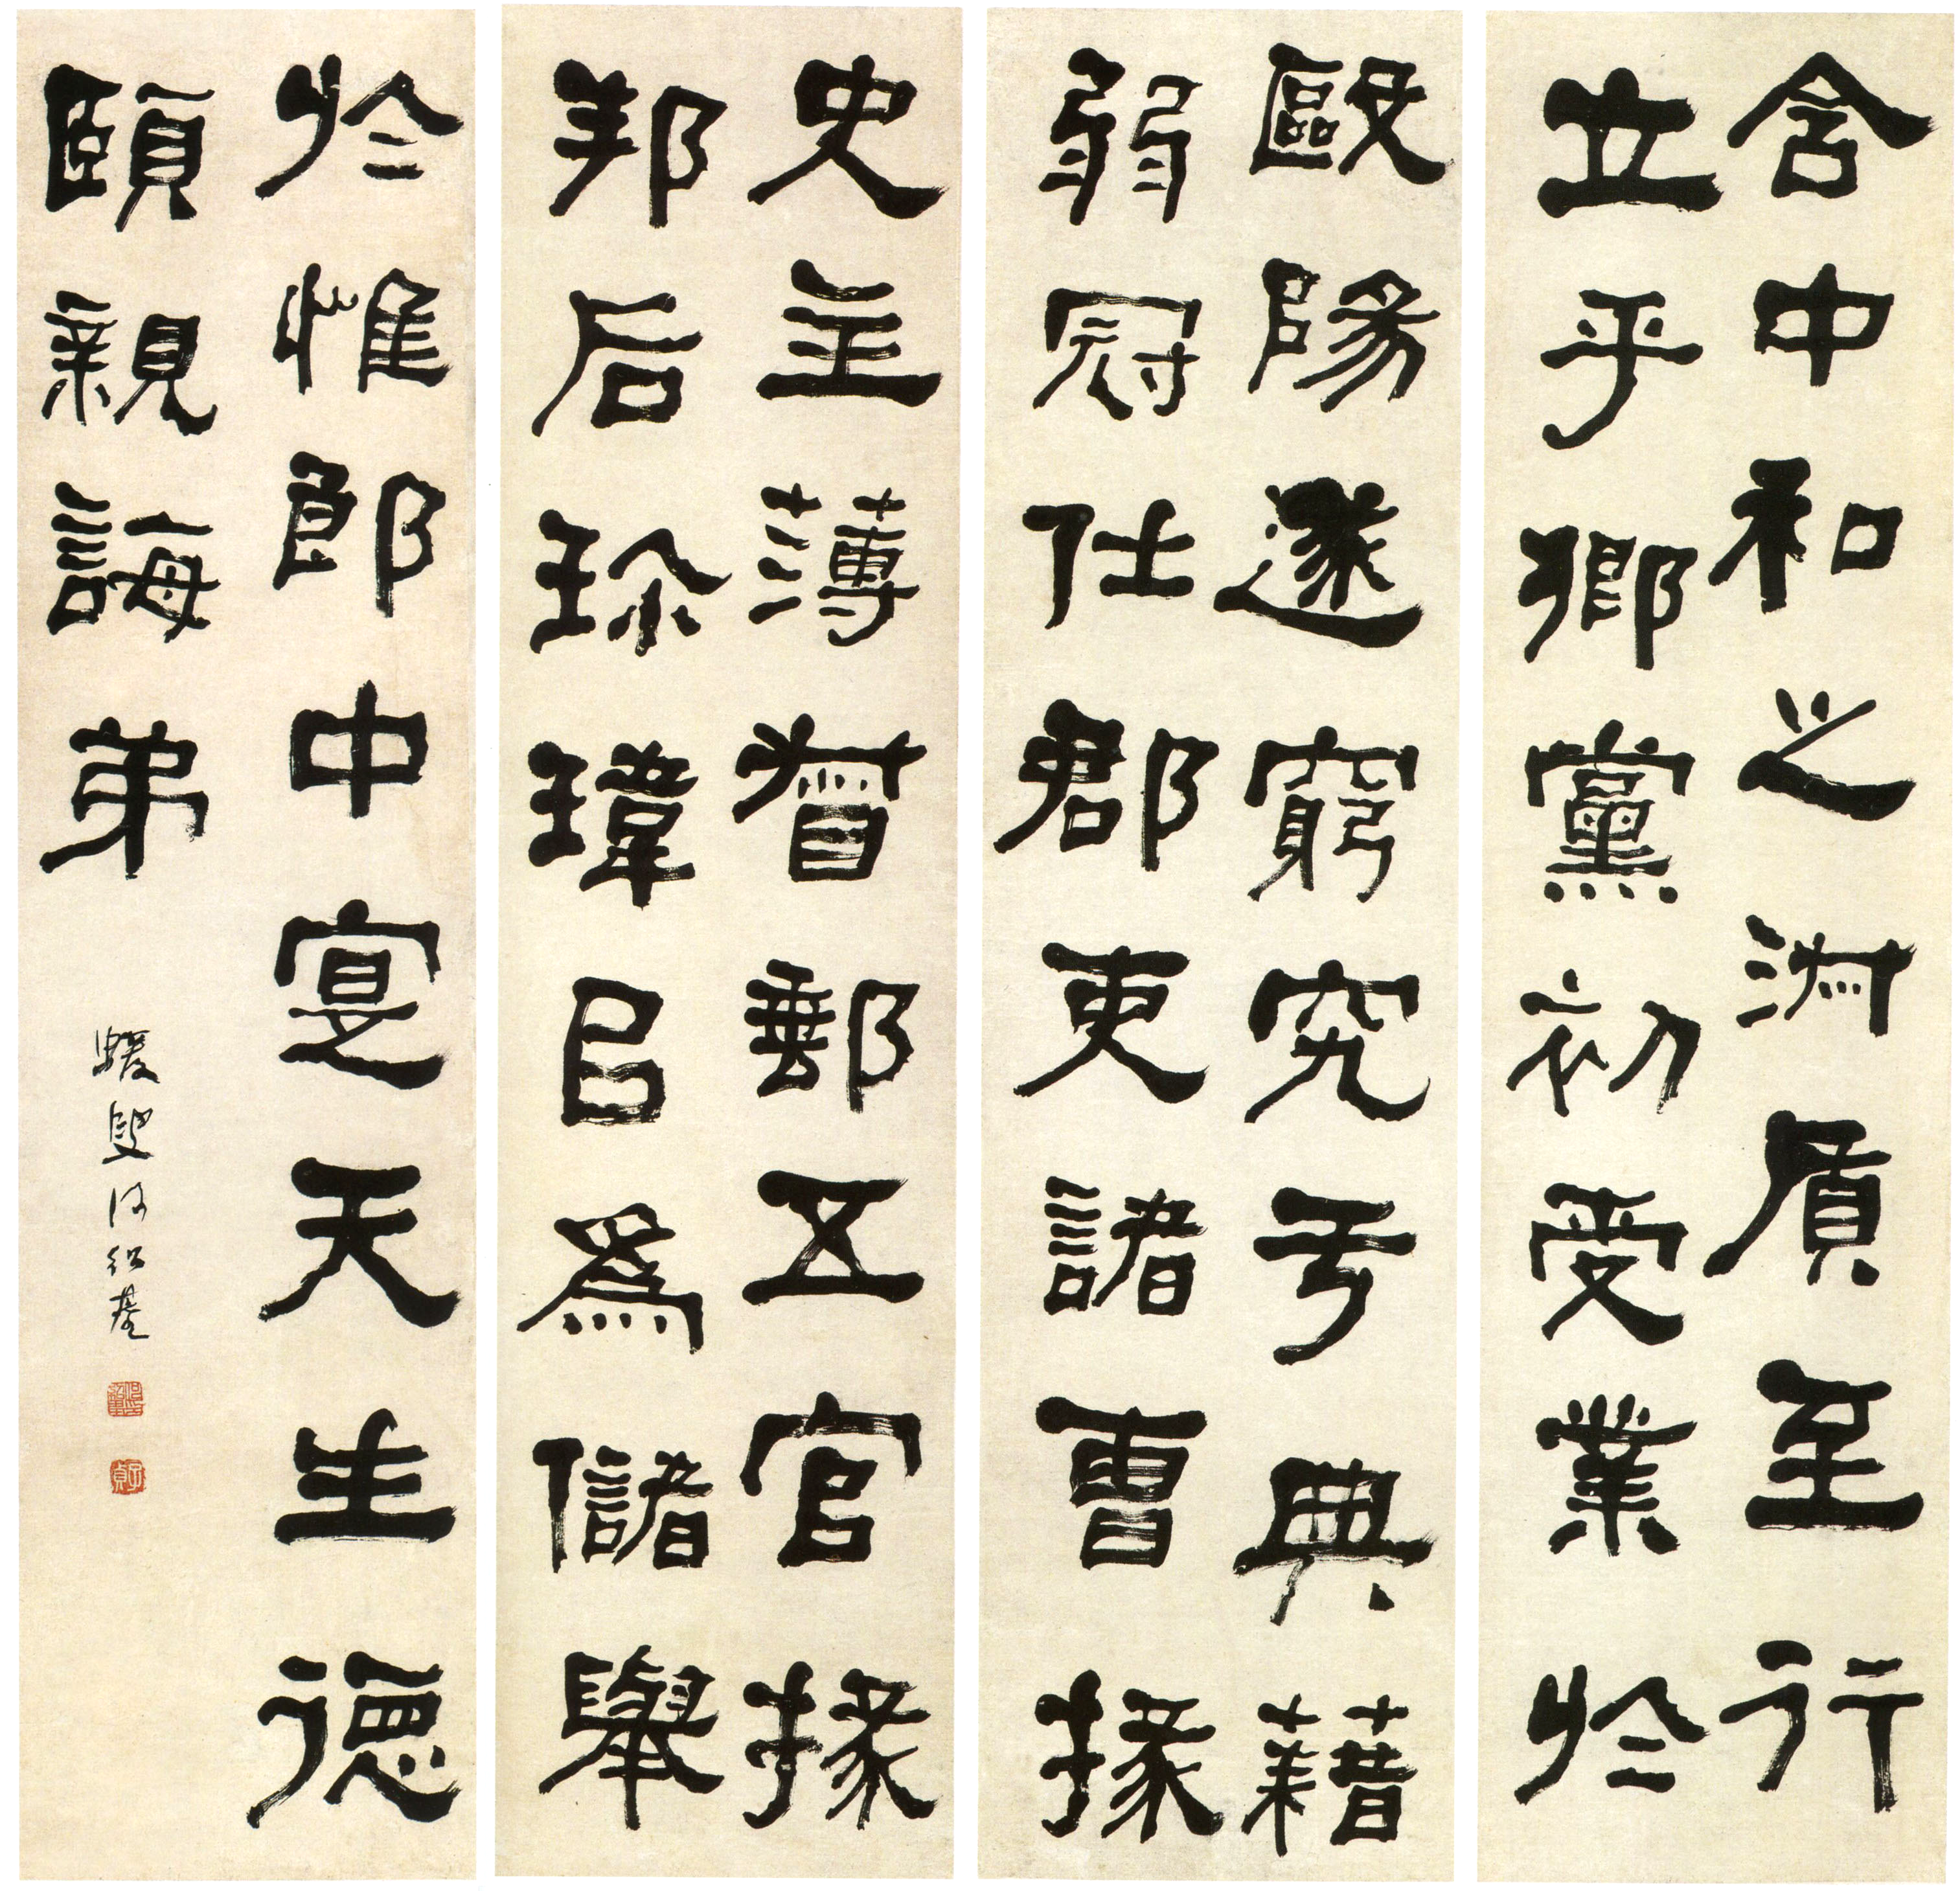 含中和之淋質至行
立乎鄉黨初受業於
歐陽遂窮究亏典藉
弱冠仕郡吏諸曹掾
史主薄督郵五官掾
邦后珎瑋㠯為儲舉
於惟郎中寔天生德
頤親誨弟
蝯叟何紹基
子貞